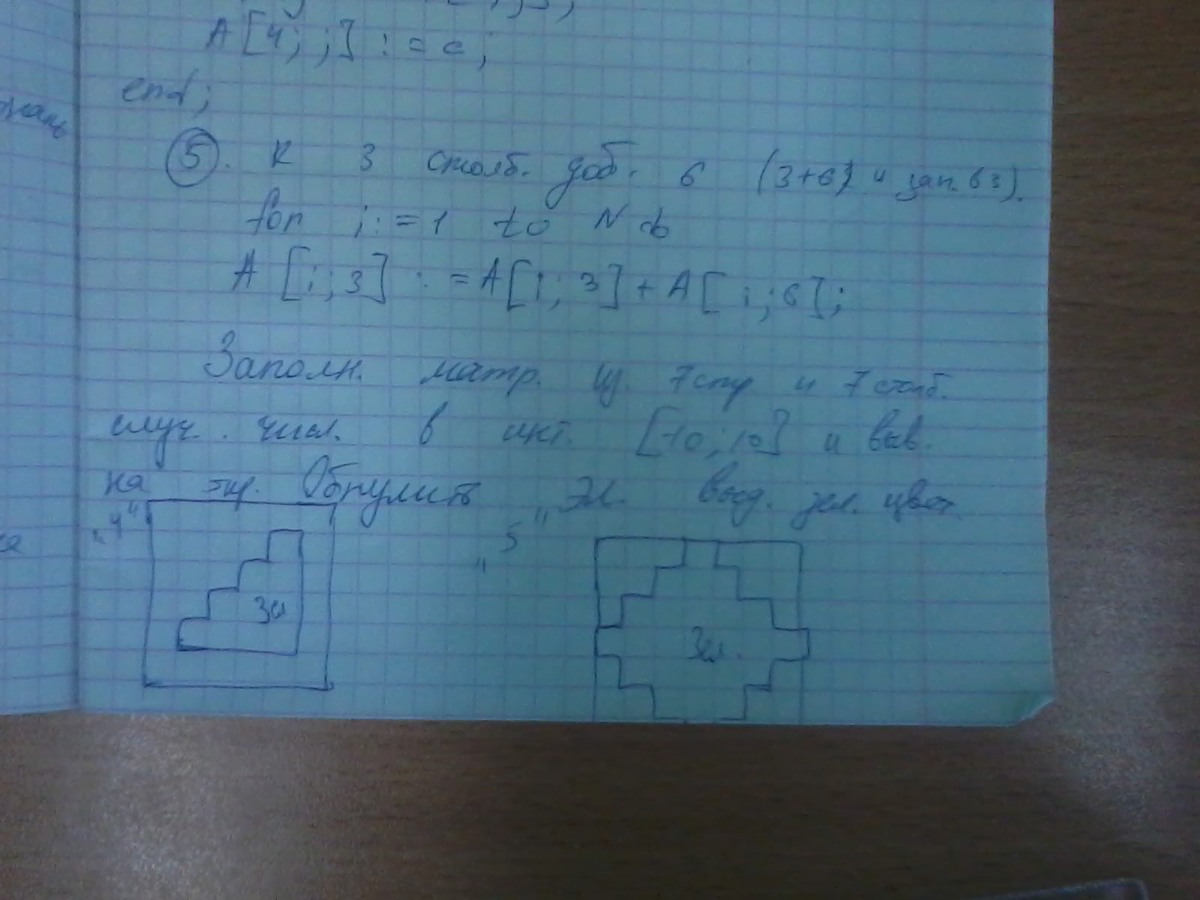 A[4; j] := c;
end;
5. К 3 столб. доб. 6 (3+6) и зап. в 3).
for i:=1 to N do
A[i; 3] := A[i; 3] + A[i; 6];
Заполн. матр. из 7 стр и 7 столб.
случ. числ. в инт. [-10; 10] и выв.
на экр. Обнулить эл. выд. зел. цвет.
"4" "5"
Зел Зел.